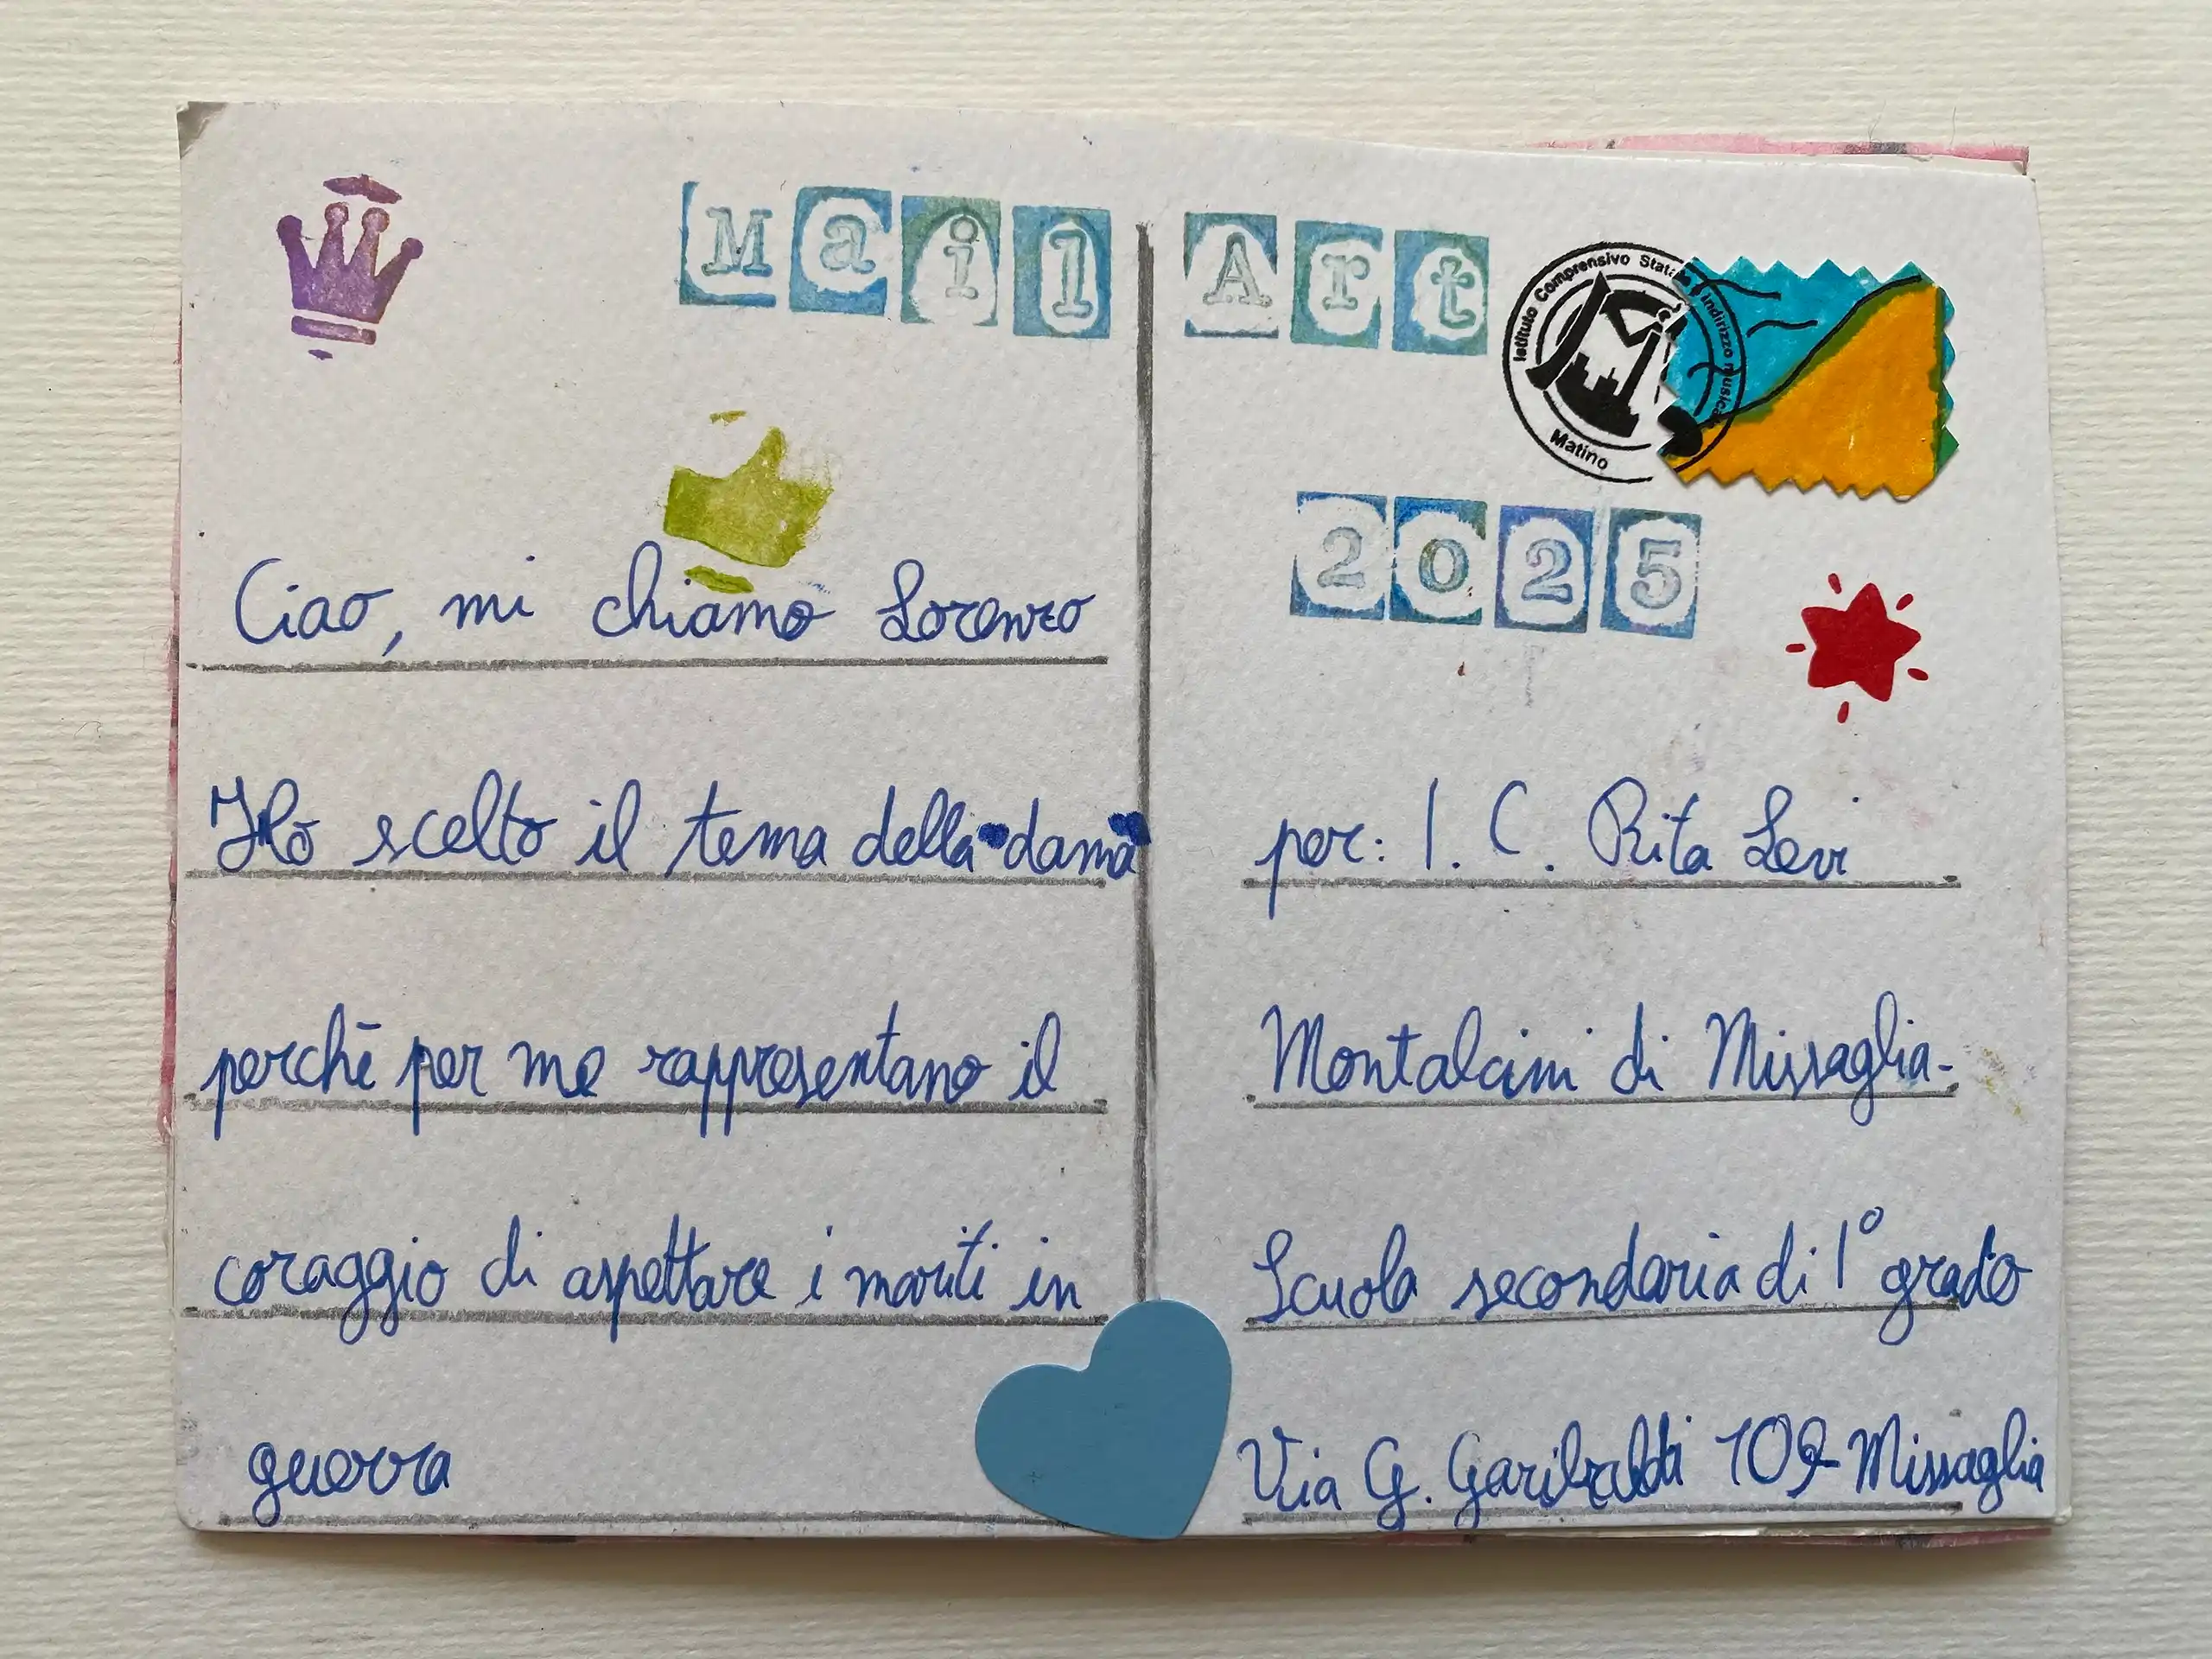 Mail Art
Istituto Comprensivo Statale Indirizzo musicale
Matino
2025
Ciao, mi chiamo Lorenzo
Ho scelto il tema della dama
perchē per me rappresentano il
coraggio di aspettare i mariti in
guerra
per: I. C. Rita Levi
Montalcini di Missaglia-
Scuola secondaria di 1° grado
Via G. Garibaldi 109 Missaglia